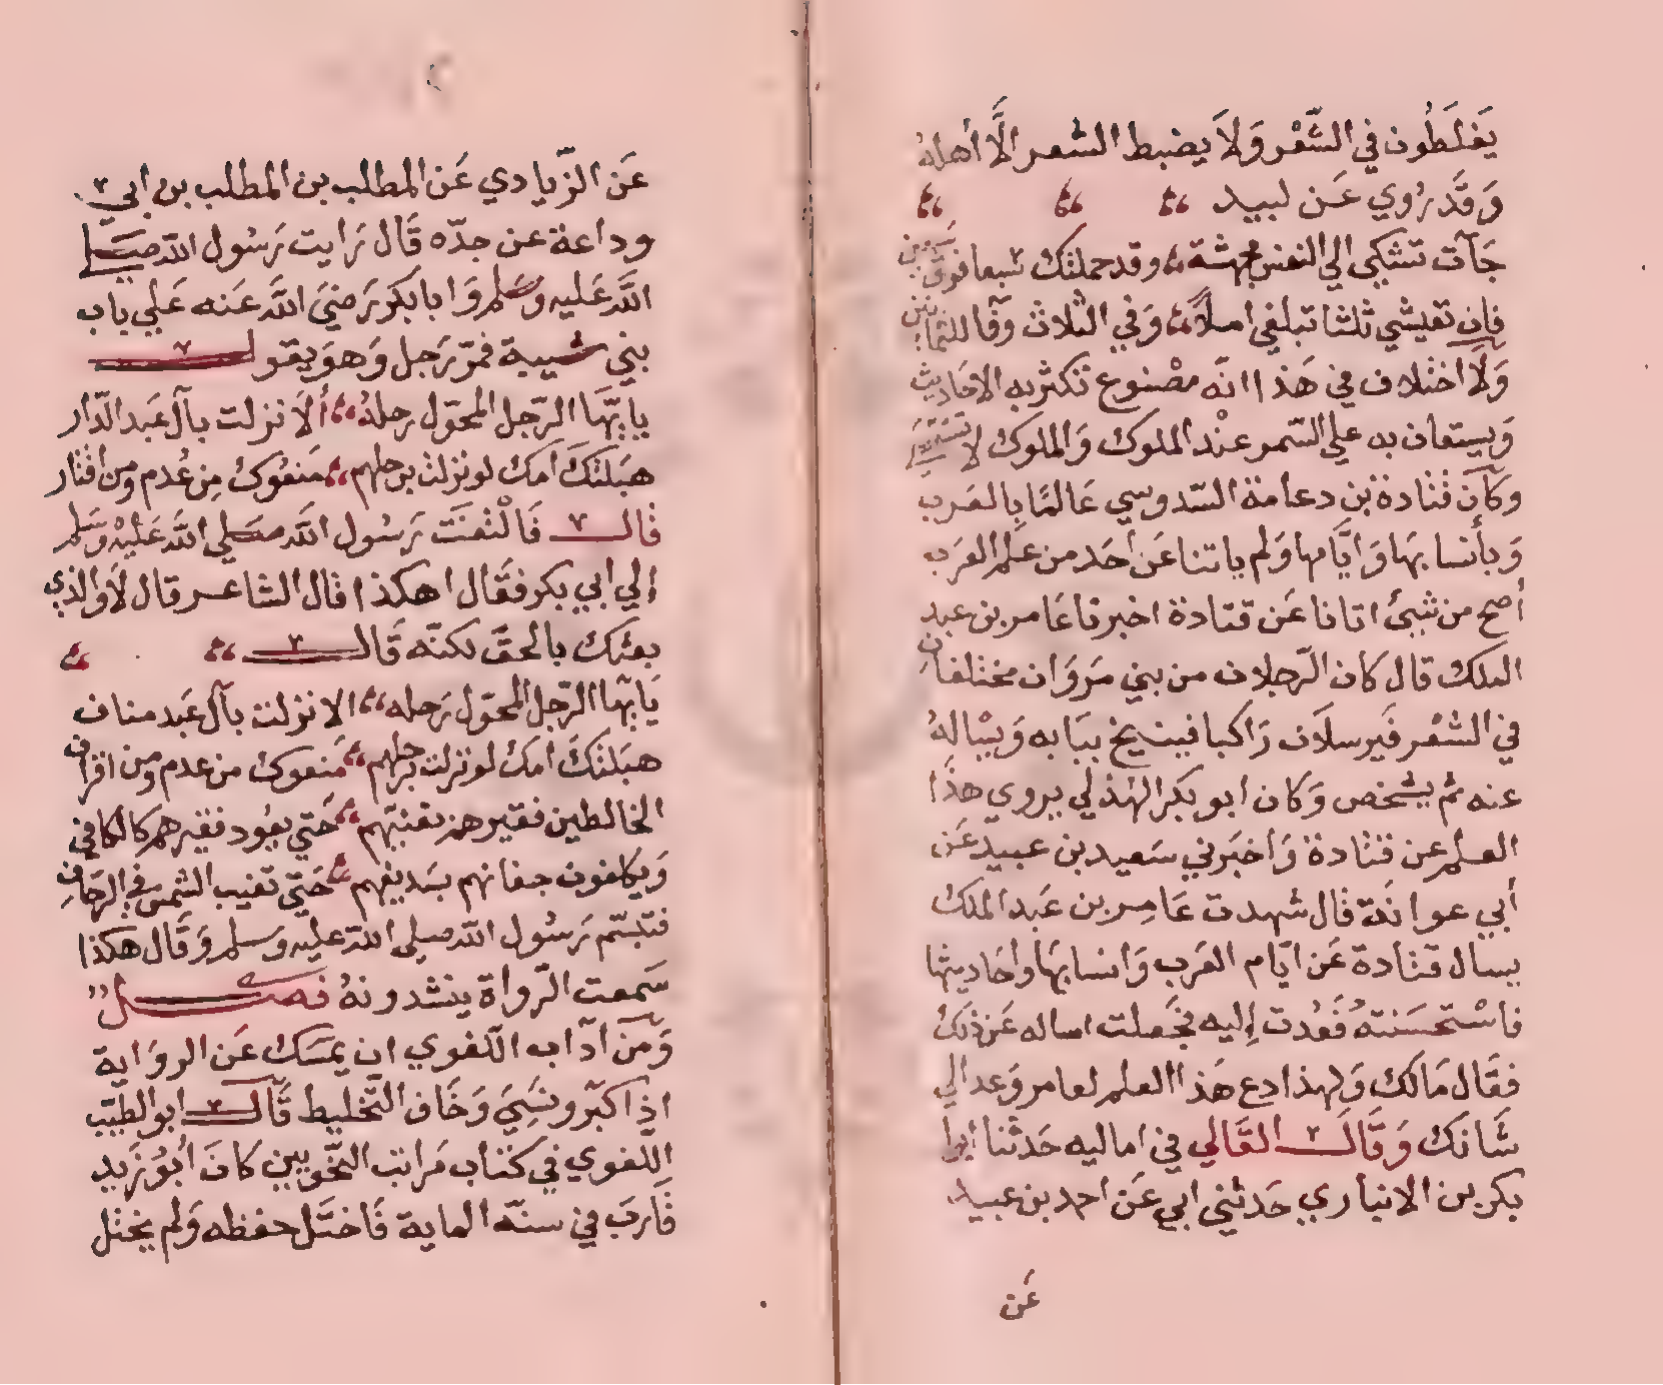 يَغلَطُون في الشَّعْر وَلاَ يضبط الشعر الَّا أهلهُ
وَقَد رُوي عَن لبيد
جَآت تشكي الي النفس مجهشة وقد حملتك سبعا فوق سبعين
فان تعيشي ثلثا تبلغي املاً وَفي الثلاث وفا للثمانين
وَلَا اختلاف في هَذا انه مصْنوع تكثر به الاحَاديث
وَيستعان به علي السّمر عنْد الملوك وَالملوك لا تستقصي
وكآن قتادة بن دعامة السّدوسي عَالمًا بالعَرب
وَبأنسابهَا وَايَّامها وَلم ياتنا عَن أحَد من علم العَرب
أصح من شيئ اتانا عَن قتادة اخبرنا عَامر بن عبد
الملك قال كان الرّجلان من بني مَروَان مختلفان
في الشعْر فَيرسلاَن رَاكبا فينيخ ببَابه وَيسْالهُ
عنه ثم يشخص وَكان ابو بكر الهذلي يروي هذَا
العلم عن قتادة وَاخبَرني سَعيد بن عبيد عَن
أبي عوانَة قال شهدت عَامِر بن عَبد الملك
يسال قتادة عَن ايّام العَرب وَانسابهَا واحَاديثها
فاسْتحسَنتهُ فَعُدت إليه فجَعلت اساله عَن ذلك
فقَال مَالك وَلهذا دع هَذا العلم لعامر وَعد الي
شَانك وَقَالَ القَالي في اماليه حَدثنا ابوا
بكر بن الانباري حَدثني ابي عَن احمد بن عبيد
عَن
عَن الزّيادي عَن المطلب بن المطلب بن ابي
وداعة عن جدّه قَال رَايت رَسُول الله صَلي
اللَّه عَليه وسَلم وَابا بكر رَضيَ اللَّه عَنه عَلي باب
بني شيبة فمرّ رَجل وَهوَ يقول
يايّهَا الرّجل المحَوّل رحلهُ ألاَ نزلت بآل عَبد الدّار
هبَلتكَ امك لو نزلت برحلهم مَنعُوك مِن عُدم ومِن أقتار
قال فَالْتفتَ رَسُول اللَّه صَلي اللَّه عَليْه وَسَلم
إلي ابي بكر فقَال اهكذا قال الشاعر قال لَا وَالذي
بعثك بالحقّ لكنّه قَال
يَايّها الرّجل المحَوّل رَحله الا نزلت بآل عَبد مناف
هبَلتكَ امك لو نزلت برحلهم مَنعوك من عدم ومن اقراف
الخالطين فقيرهم بغنيّهم حَتي يعُود فقيرهم كالكافي
وَيكلفون جفانهم بسَديفهم حَتّي تغيب الشمس في الرجّاف
فتبسّم رَسُول اللّه صلي اللّه عليه وَسلم وَقَال هكذا
سَمعت الرّواة ينشدونهُ فصل
وَمن آدَاب اللّغوي ان يمسَك عَن الروَاية
اذا كبر ونسَيَ وَخَاف التّخليط قَآل ابو الطيّب
اللّغوي في كتاب مَراتب النّحَويين كَانَ أبُو زَيد
قَارَب في سنّه الماية فَاختَل حفظه وَلم يختل